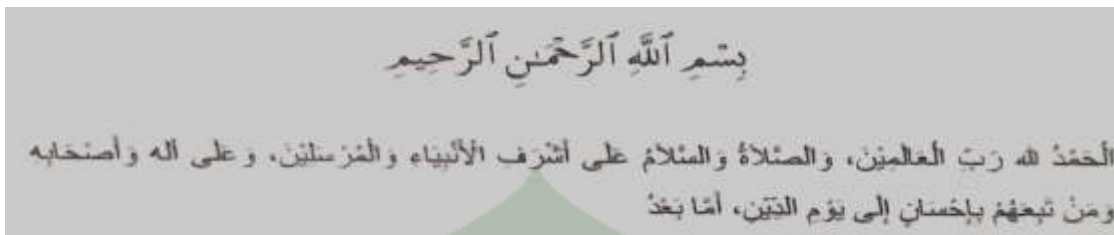 بِسْمِ ٱللَّهِ ٱلرَّحْمَـٰنِ ٱلرَّحِيمِ
الْحَمْدُ لله رَبّ الْعَالَمِيْنَ، وَالصَّلاَةُ وَالسَّلاَمُ عَلى أَشْرَف الْأَنْبِيَاءِ وَالْمُرْسَلِيْنَ، وَعَلى آله وَأَصْحَابه
وَمَنْ تَبِعَهُمْ بِإِحْسَانٍ إِلَى يَوْمِ الدِّيْنِ، أَمَّا بَعْدُ